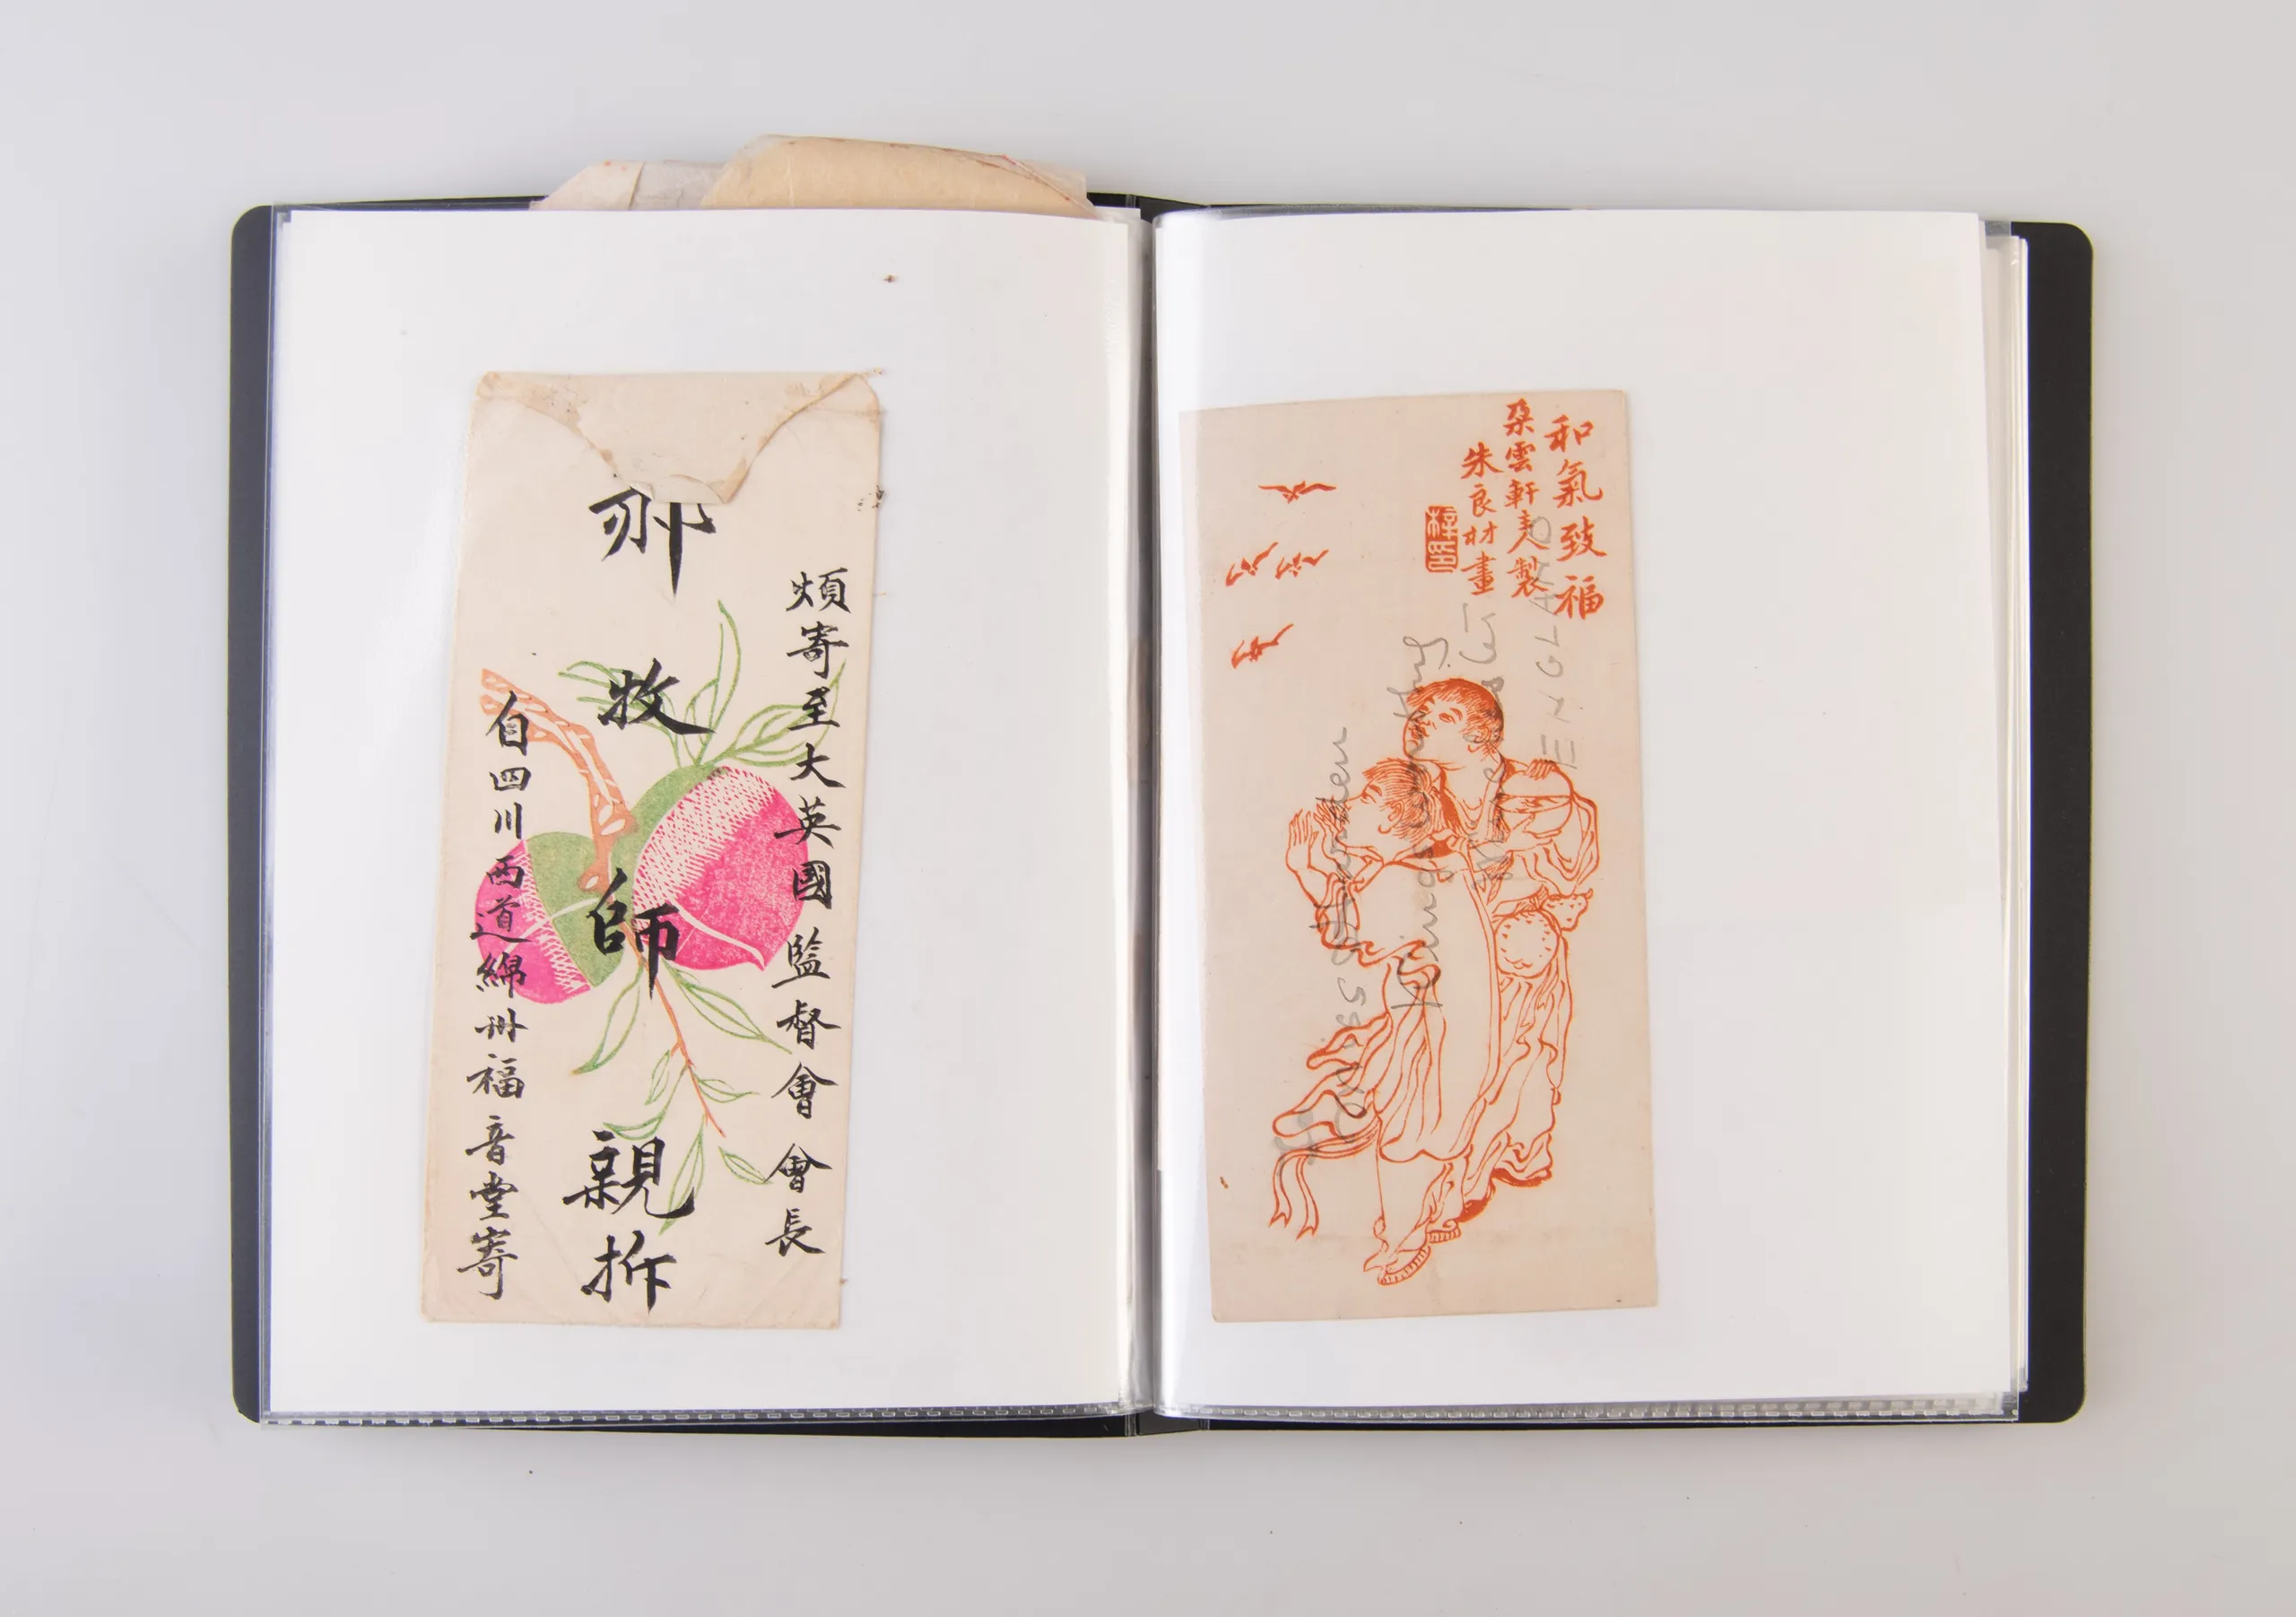 煩寄至大英國監督會會長
那牧師親拆
自四川西道綿州福音堂寄
和氣致福
朶雲軒美製
朱良材畫
ENGLAND